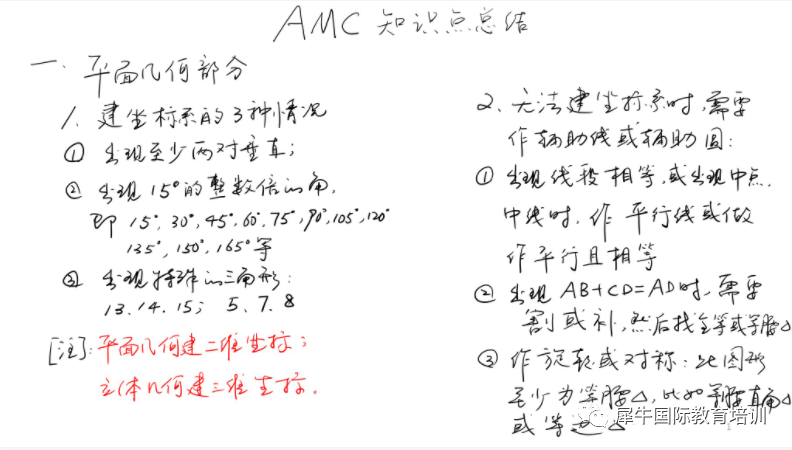 AMC 知识点总结
一. 平面几何部分
1. 建坐标系的3种情况
① 出现至少两对垂直;
② 出现15°的整数倍的角,
即 15°, 30°, 45°, 60°, 75°, 90°, 105°, 120°
135°, 150°, 165°等
③ 出现特殊的三角形:
13. 14. 15; 5. 7. 8
[注]: 平面几何建二维坐标;
立体几何建三维坐标.
2. 无法建坐标系时, 需要
作辅助线或辅助圆:
① 出现线段相等, 或出现中点,
中线时, 作 平行线或做
作平行且相等
② 出现 AB+CD=AD时, 需要
割或补, 然后找全等或等腰△
③ 作旋转或对称: 此图形
至少为等腰△, 比如等腰直角△
或等边△
犀牛国际教育培训